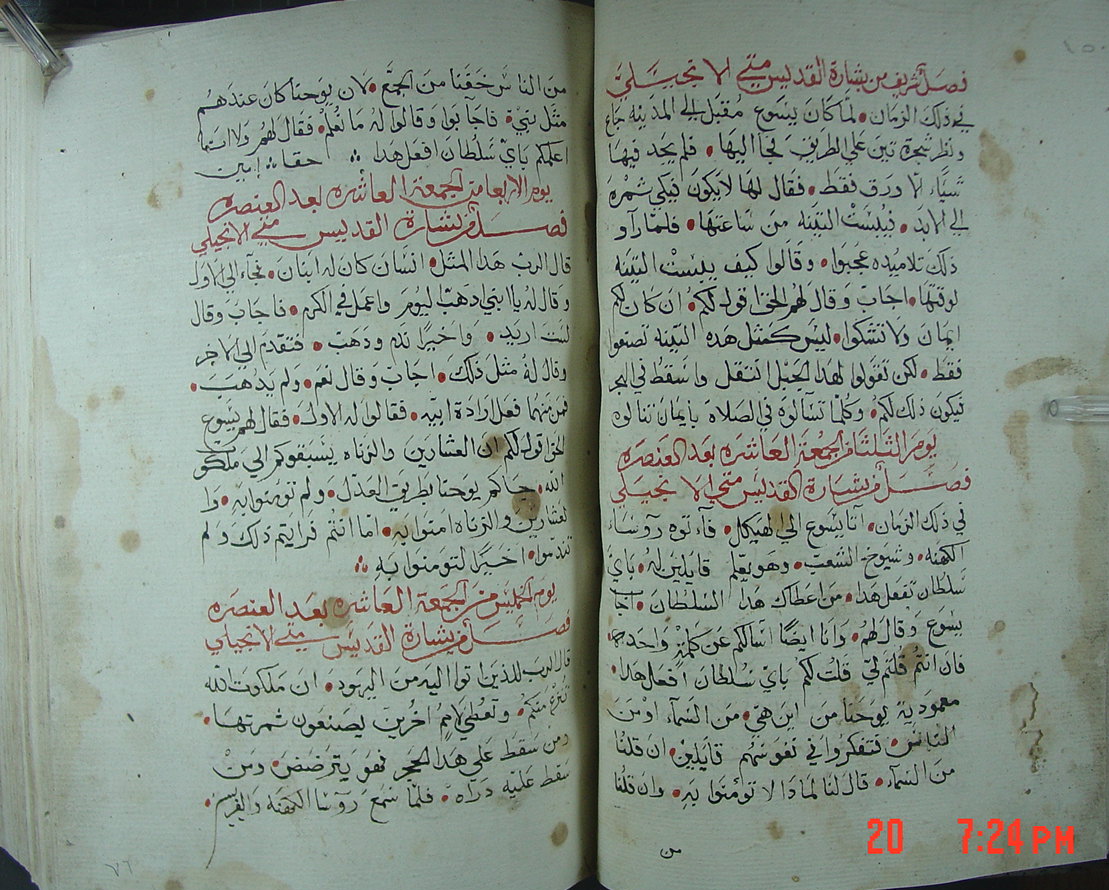 فصل شريف من بشارة القديس متي الانجيلي
في ذلك الزمان • لما كان يسوع مقبل الي المدينه جاع
ونظر شجرة تين علي الطريق فجا اليها • فلم يجد فيها
شياء الا ورق فقط • فقال لها لا يكون فيكي ثمره
الي الابد • فيبست التينه من ساعتها • فلما راو
ذلك تلاميده عجبوا • وقالوا كيف يبست التينه
لوقتها • اجاب وقال لهم الحق اقول لكم • ان كان لكم
ايمان ولا تشكوا • ليس كمثل هده التينه تصنعوا
فقط • لكن تقولوا لهدا الجبل انتقل واسقط في البحر
فيكون ذلك لكم • وكلما تسالوه في الصلاة بايمان تنالوه
يوم الثلثا من الجمعة العاشره بعد العنصره
فصل من بشارة القديس متي الانجيلي
في ذلك الزمان • اتا يسوع الي الهيكل • فاتوه روساء
الكهنه • وشيوخ الشعب • وهو يعلم قايلين له • باي
سلطان تفعل هدا • من اعطاك هدا السلطان • اجاب
يسوع وقال لهم • وانا ايضا اسالكم عن كلمة واحده
فان انتم قلتم لي قلت لكم باي سلطان افعل هدا •
معمودية يوحنا من اين هي • من السماء او من
الناس • فتفكروا في نفوسهم قايلين • ان قلنا
من السماء • قال لنا لمادا لا تؤمنوا به • وان قلنا
من
من الناس خفنا من الجمع • لان يوحنا كان عندهم
مثل نبي • فاجابوا وقالوا له ما نعلم • فقال لهم ولا انا
اعلمكم باي سلطان افعل هدا ؞ حقا ؞ امين
يوم الاربعا من الجمعة العاشره بعد العنصره
فصل من بشارة القديس متي الانجيلي
قال الرب هدا المثل • انسان كان له ابنان • فجاء الي الاول
وقال له يا ابني ادهب اليوم واعمل في الكرم • فاجاب وقال
لست اريد • واخيرا ندم ودهب • فتقدم الي الاخر
وقال له مثل ذلك • اجاب وقال نعم • ولم يدهب •
فمن منهما فعل ارادة ابيه • فقالوا له الاول • فقال لهم يسوع
الحق اقول لكم ان العشارين والزناه يسبقوكم الي ملكوت
الله • جاكم يوحنا بطريق العدل • ولم تومنوا به • وا
لعشارين والزناه امنوا به • اما انتم فرايتم ذلك ولم
تندموا • اخيرا لتومنوا به ؞
يوم الخميس من الجمعة العاشره بعد العنصره
فصل من بشارة القديس متي الانجيلي
قال الرب للذين اتوا اليه من اليهود • ان ملكوت الله
تنزع منكم • وتعطي لامم اخرين يصنعون ثمرتها •
ومن سقط علي هدا الحجر فهو يترضض • ومن
سقط عليه دراه • فلما سمع روسا الكهنه والفريسيين •
٧٦
20 7:24 PM